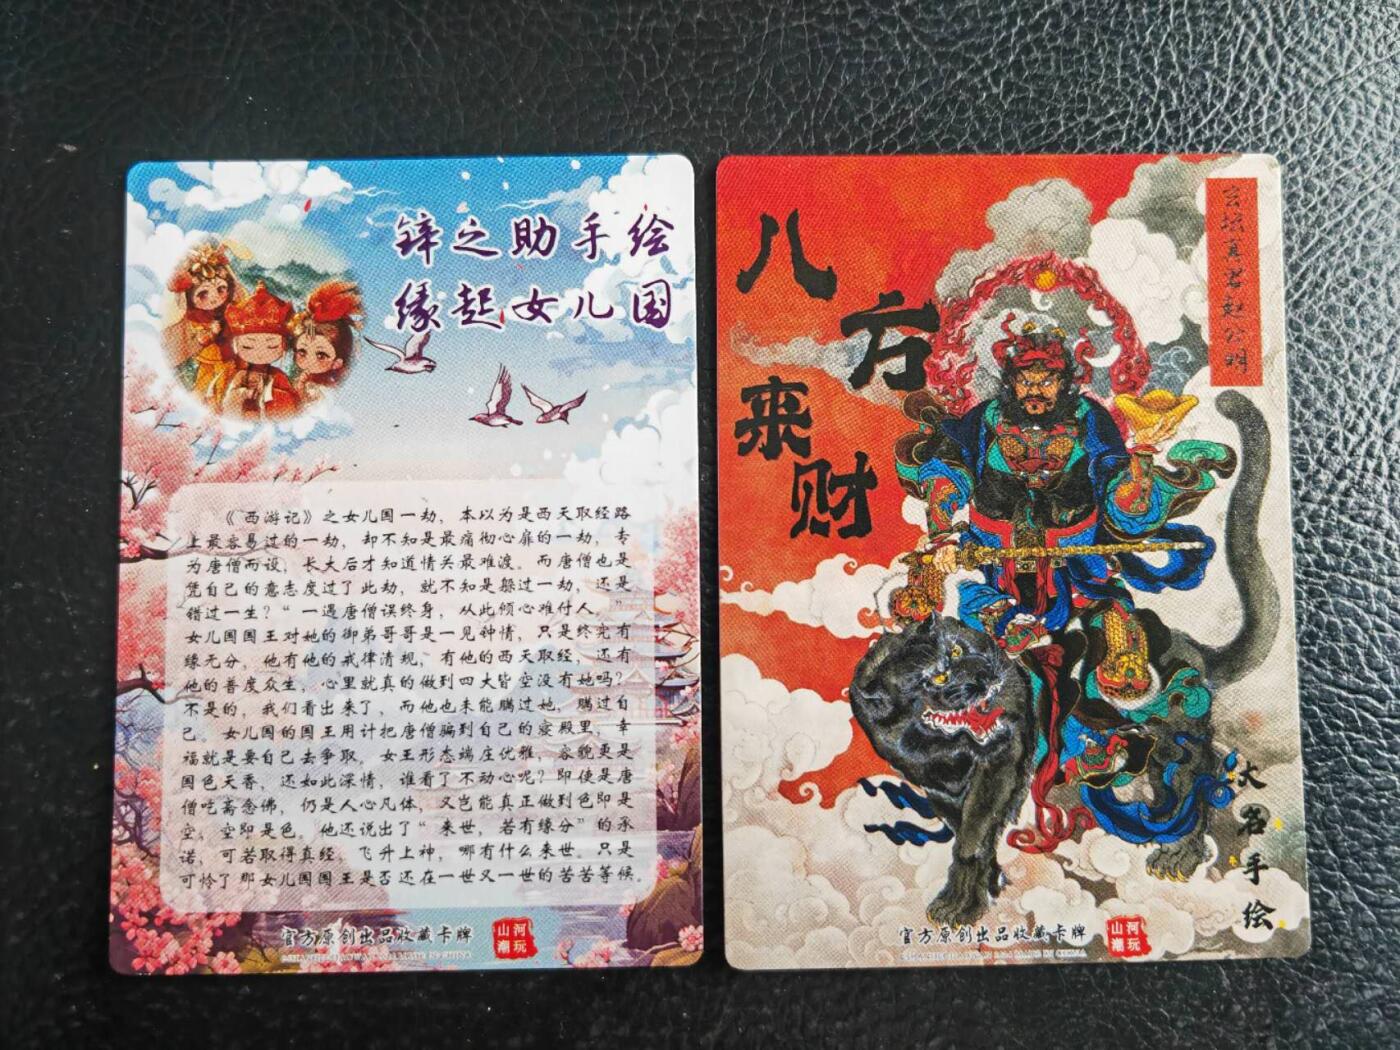 锌之助手绘
缘起女儿国
《西游记》之女儿国一劫，本以为是西天取经路
上最容易过的一劫，却不知是最痛彻心扉的一劫，专
为唐僧而设，长大后才知道情关最难渡。而唐僧也是
凭自己的意志度过了此劫，就不知是躲过一劫，还是
错过一生？“一遇唐僧误终身，从此倾心难付人。”
女儿国国王对她的御弟哥哥是一见钟情，只是终究有
缘无分，他有他的戒律清规，有他的西天取经，还有
他的普度众生，心里就真的做到四大皆空没有她吗？
不是的，我们看出来了，而他也未能瞒过她，瞒过自
己。女儿国的国王用计把唐僧骗到自己的寝殿里，幸
福就是要自己去争取，女王形态端庄优雅，容貌更是
国色天香，还如此深情，谁看了不动心呢？即使是唐
僧吃斋念佛，仍是人心凡体，又岂能真正做到色即是
空，空即是色。他还说出了“来世，若有缘分”的承
诺，可若取得真经，飞升上神，哪有什么来世。只是
可怜了那女儿国国王是否还在一世又一世的苦苦等候。
官方原创出品收藏卡牌
山河
潮玩
八方来财
玄坛真君赵公明
大名手绘
官方原创出品收藏卡牌
山河
潮玩